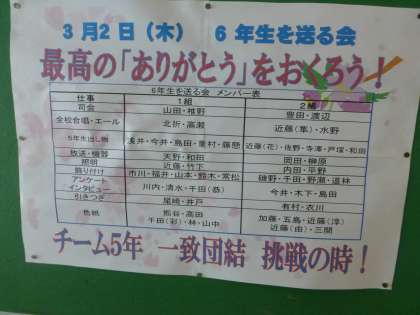 3月2日（木）　6年生を送る会
最高の「ありがとう」をおくろう！
6年生を送る会 メンバー表
仕事　1組　2組
司会　山田・椎野　豊田・渡辺
全校合唱・エール　北折・高瀬　近藤（隼）・水野
6年生出し物　浅井・今井・島田・里村・藤懸　近藤（花）・佐野・寺澤・戸塚・和田
放送・機器　天野・和田　岡田・榊原
照明　近藤・竹下　内田・平野
飾り付け　市川・福井・山本・鈴木・常松　磯野・千田・野瀬・道林
アンケート
インタビュー　川内・清水・千田（恭）　今井・木下・島田
引きつぎ　尾崎・井戸　有村・衣川
色紙　熊谷・高田　加藤・五島・近藤（淳）
千田（彩）・林・山中　近藤（由）・三関
チーム5年　一致団結　挑戦の時！